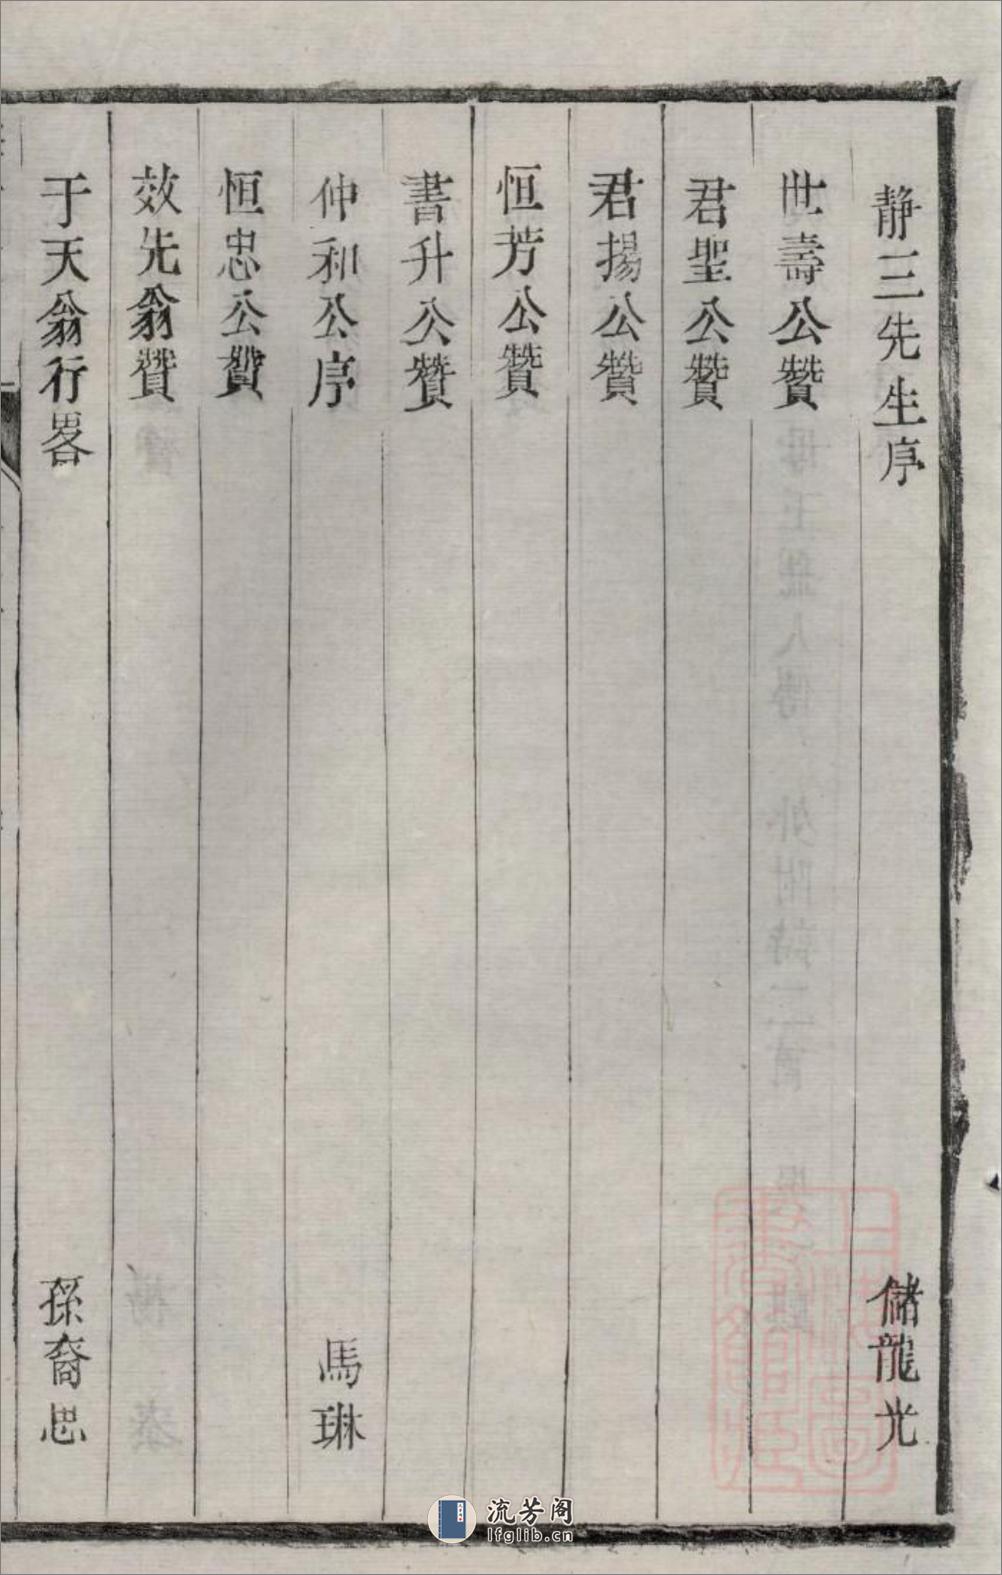 靜三先生序 儲龍光
世壽公贊
君聖公贊
君揚公贊
恒芳公贊
書升公贊
仲和公序 馬琳
恒忠公贊
效先翁贊
于天翁行畧 孫裔思
流芳阁
lfglib.cn